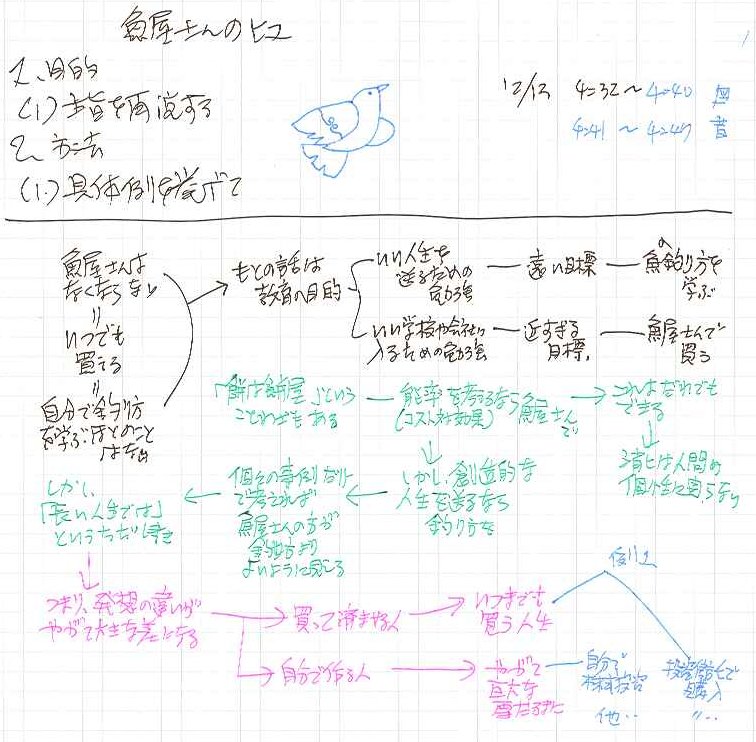 魚屋さんのヒミ
1、目的
(1) 主旨を再説する
2、方法
(1) 具体例を挙げて
12/12 4:32〜4:40
4:41 〜 4:47
魚屋さんは
なくならない
||
いつでも
買える
||
自分で釣り方
を学ぶほどのこと
はない
もとの話は
教育の目的
いい人生を
送るための
勉強
遠い目標
魚の釣り方を
学ぶ
いい学校や会社に
入るための勉強
近すぎる
目標
魚屋さんで
買う
「餅は餅屋」という
ことわざもある
能率を考えるなら魚屋さんで
(コスト対効果)
これはだれでも
できる
消化は人間の
個性に関らない
しかし、創造的な
人生を送るなら
釣り方を
個々の事例だけ
で考えれば
魚屋さんの方が
釣り方より
よいように見える
しかし、
「長い人生では」
というただし書き
つまり、発想の違いが
やがて大きな差になる
買って済ませる人
いつまでも
買う人生
自分で作る人
やがて
巨大な
雪だるまに
例えば
自分で
株式投資
他‥
投資信託で
購入
〃‥